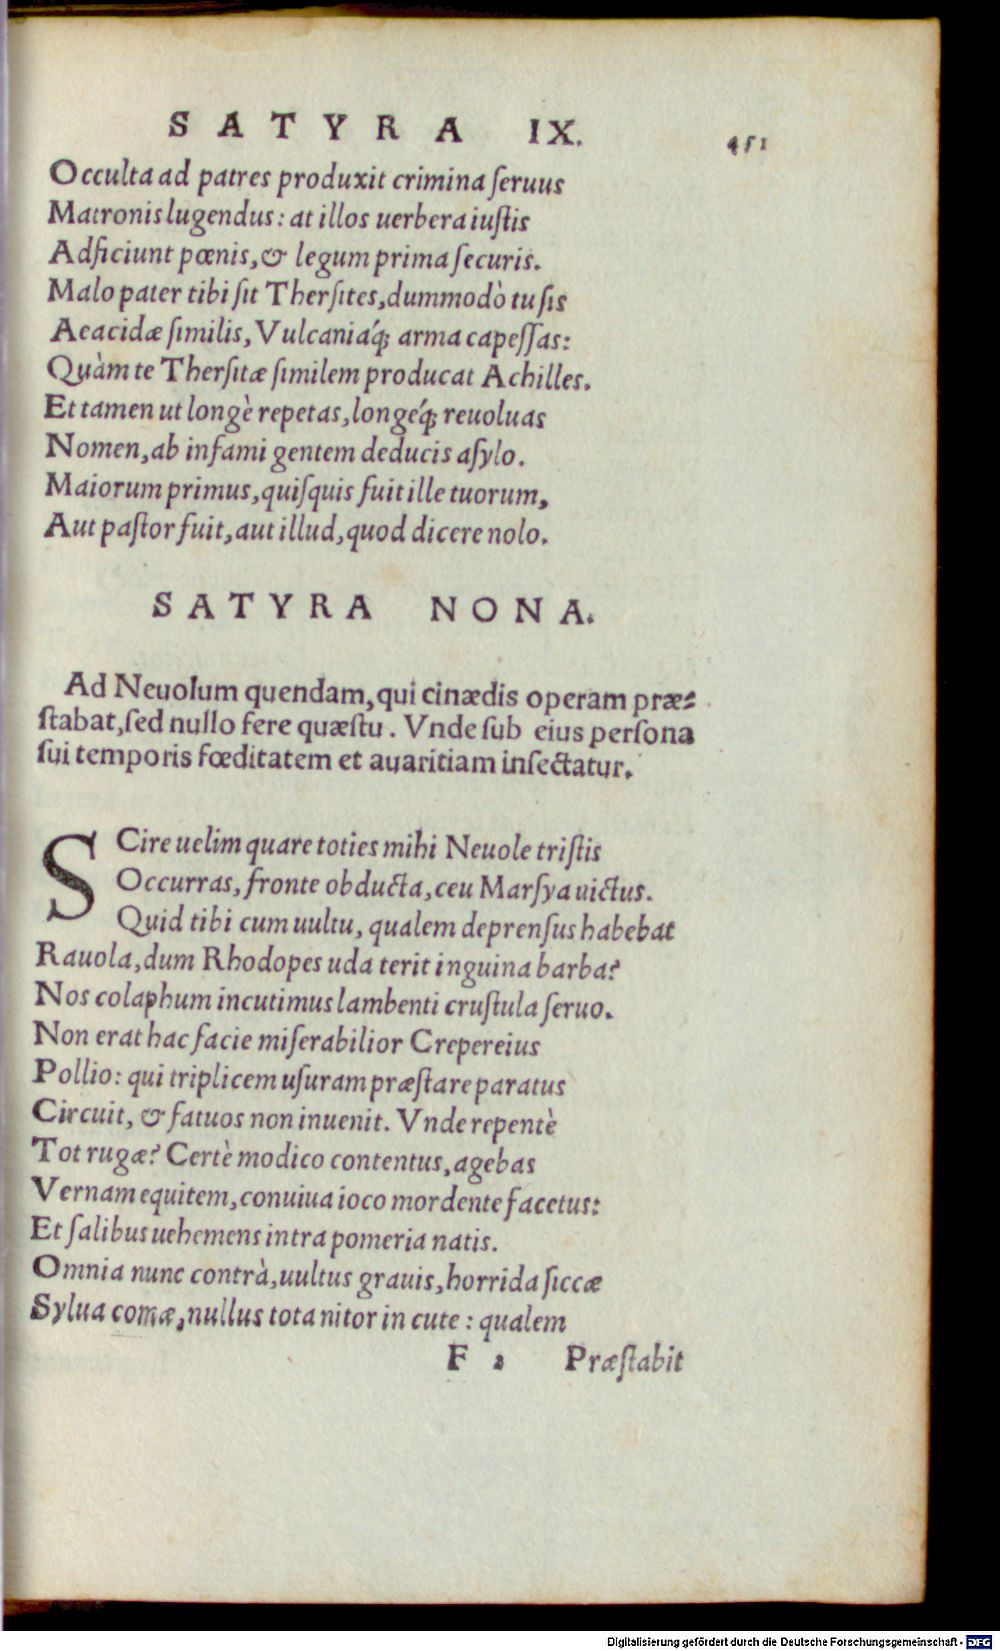 SATYRA IX. 451
Occulta ad patres produxit crimina ſeruus
Matronis lugendus: at illos uerbera iuſtis
Adficiunt pœnis, & legum prima ſecuris.
Malo pater tibi ſit Therſites, dummodò tu ſis
Aeacidæ ſimilis, Vulcaniaq́; arma capeſſas:
Quàm te Therſitæ ſimilem producat Achilles.
Et tamen ut longè repetas, longeq́; reuoluas
Nomen, ab infami gentem deducis aſylo.
Maiorum primus, quiſquis fuit ille tuorum,
Aut paſtor fuit, aut illud, quod dicere nolo.
SATYRA NONA.
Ad Neuolum quendam, qui cinædis operam præ-
ſtabat, ſed nullo fere quæſtu. Vnde ſub eius perſona
ſui temporis fœditatem et auaritiam inſectatur.
SCire uelim quare toties mihi Neuole triſtis
Occurras, fronte obducta, ceu Marſya uictus.
Quid tibi cum uultu, qualem deprenſus habebat
Rauola, dum Rhodopes uda terit inguina barba?
Nos colaphum incutimus lambenti cruſtula ſeruo.
Non erat hac facie miſerabilior Crepereius
Pollio: qui triplicem uſuram præſtare paratus
Circuit, & fatuos non inuenit. Vnde repentè
Tot rugæ? Certè modico contentus, agebas
Vernam equitem, conuiua ioco mordente facetus:
Et ſalibus uehemens intra pomeria natis.
Omnia nunc contrà, uultus grauis, horrida ſiccæ
Sylua comæ, nullus tota nitor in cute: qualem
F 2 Præſtabit
Digitalisierung gefördert durch die Deutsche Forschungsgemeinschaft - DFG